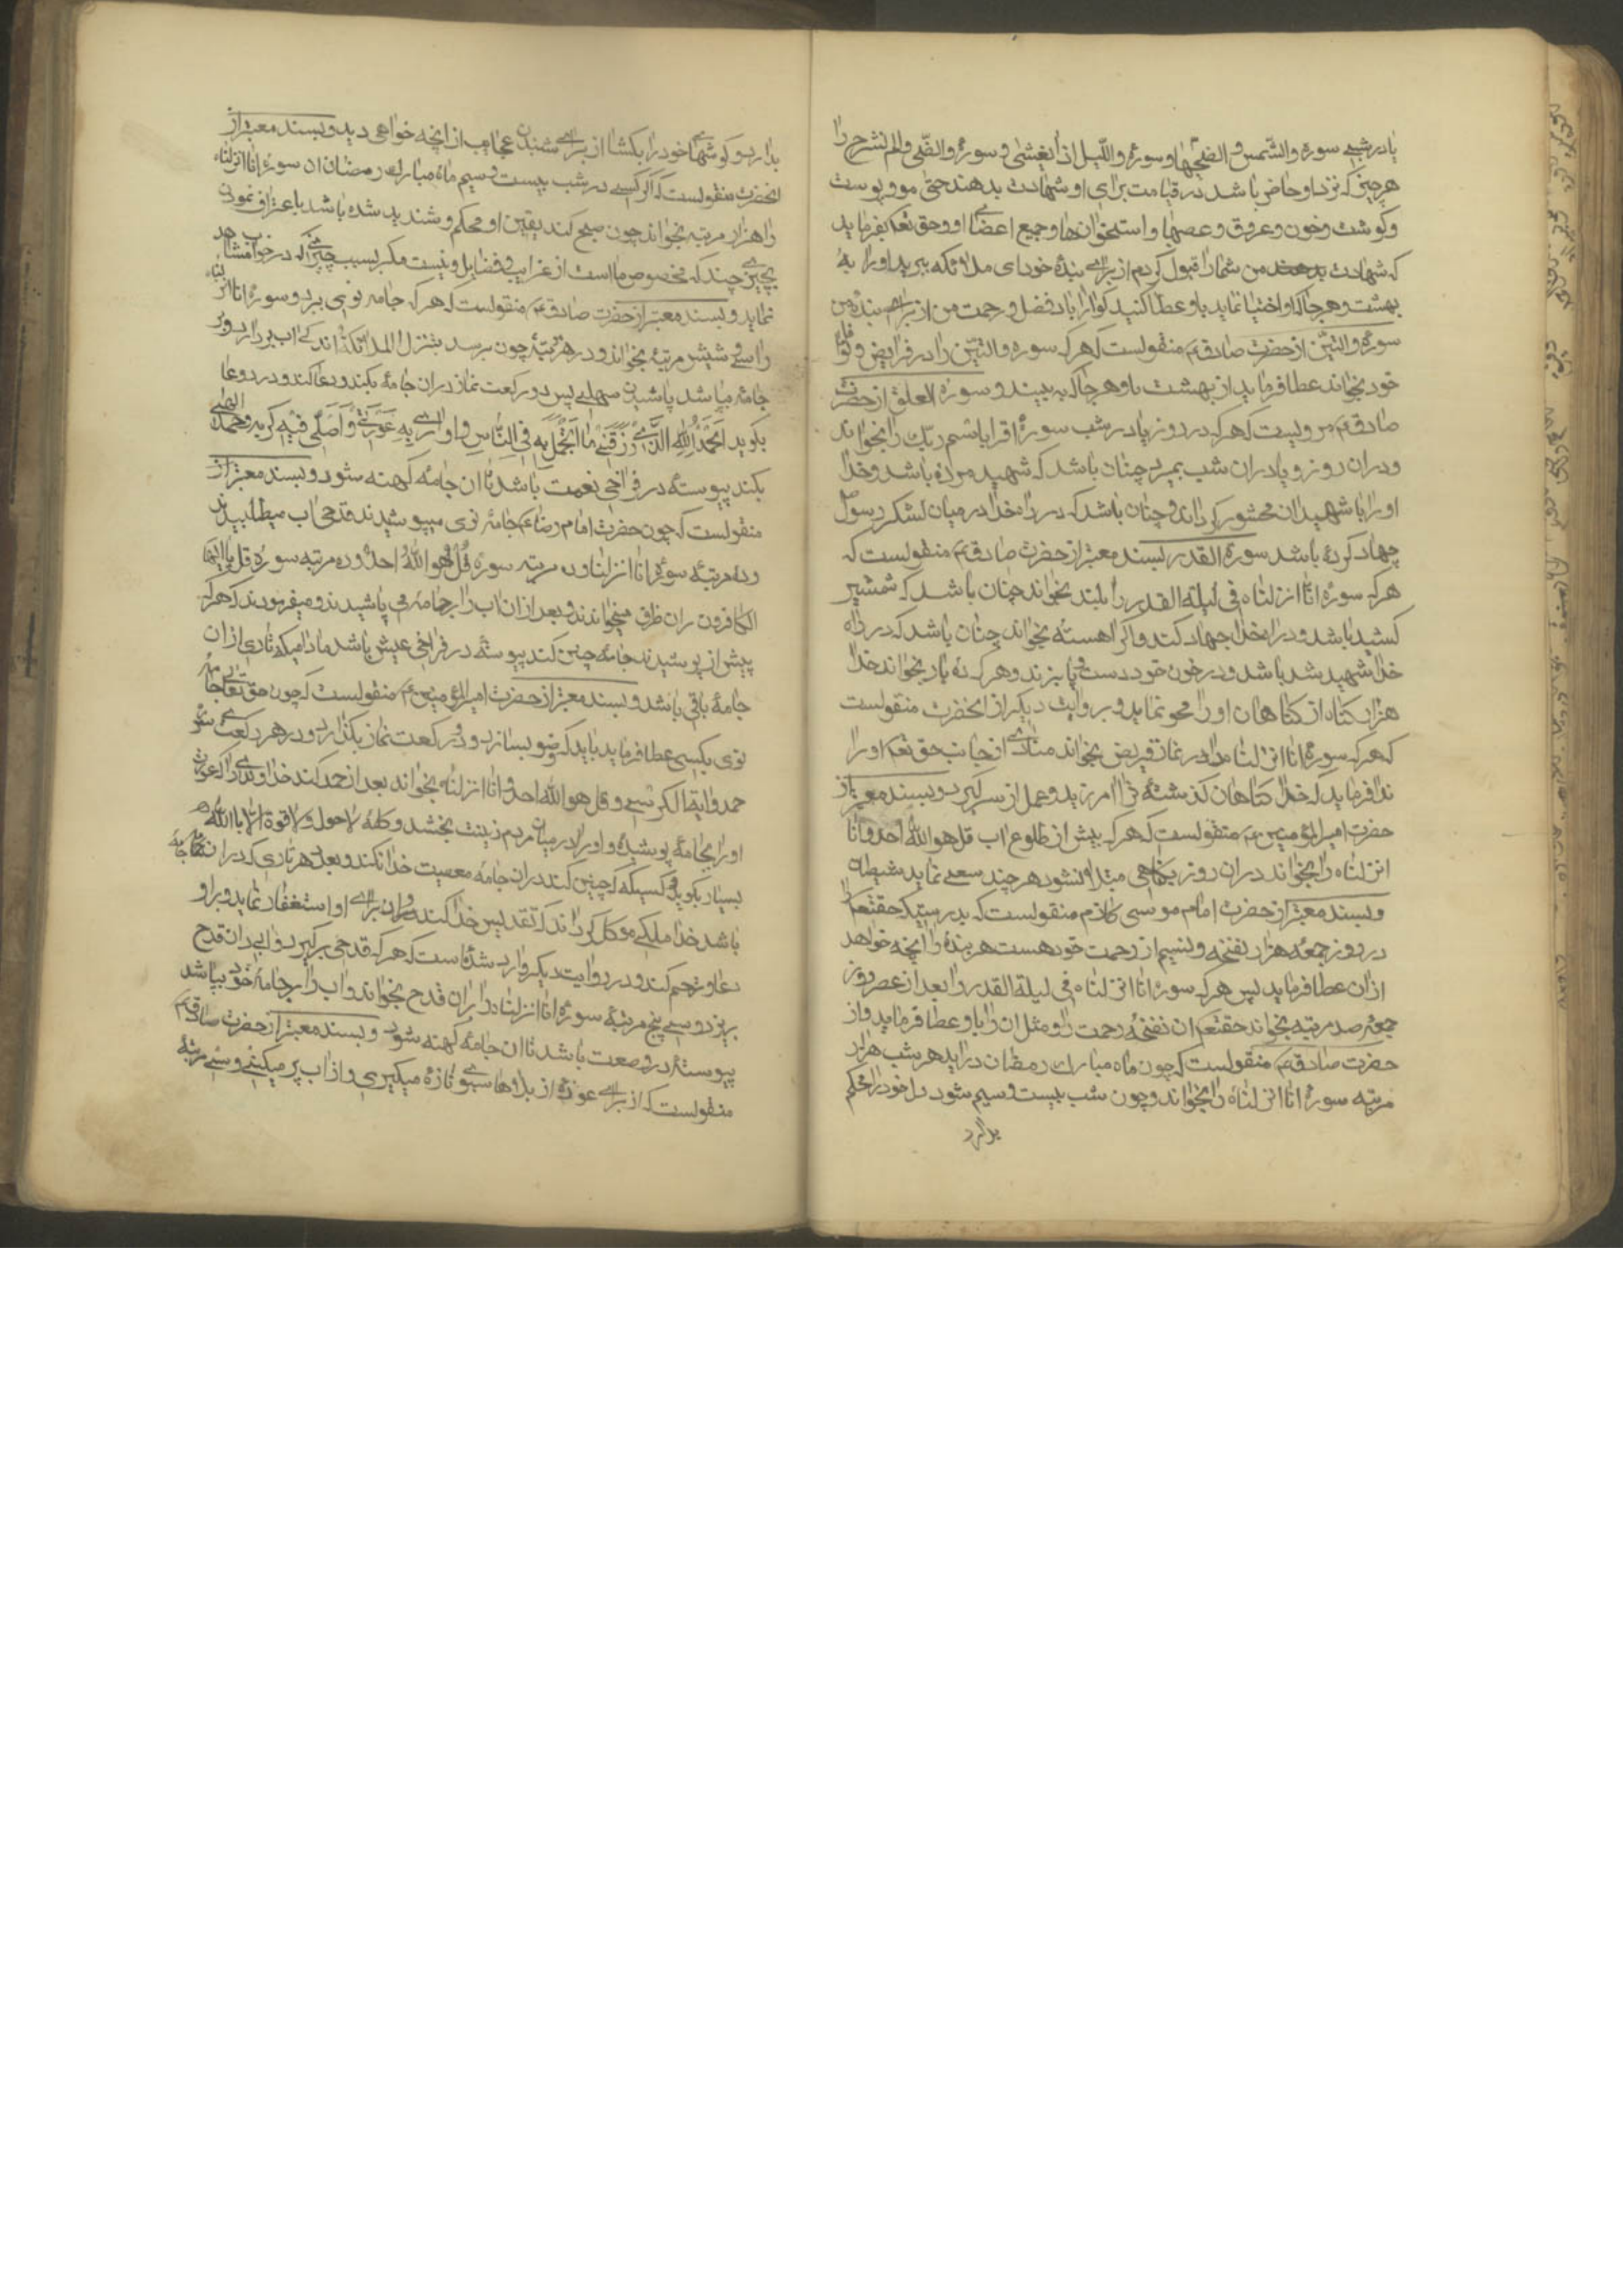 یا در شبی سوره والشمس و الضحیها و سوره واللیل اذا یغشی و سوره والضحی و الم نشرح را
هر چیز که نزد او حاضر باشد در قیامت برای او شهادت بدهند حتی مو و پوست
و کوشت و خون و عروق و عصبها و استخوان ها و جمیع اعضای او و حق تعه بفرماید
که شهادت من شما را قبول کردم از برای بنده خود ای ملائکه ببرید او را به
بهشت و هر جا که او اختیار نماید باو عطا کنید کوارا باد فضل و رحمت من از برای بنده من
سوره والتین از حضرت صادق ع منقولست که هر که سوره والتین را در فرایض و نوافل
خود بخواند عطا فرماید از بهشت باو هر جا که به بیند و سوره العلق از حضرت
صادق ع مرویست که هر که در روز یا در شب سوره اقرا باسم ربک را بخواند
و در ان روز و یا در ان شب بمیرد چنان باشد که شهید مرده باشد و خدا
او را با شهیدان محشور کرداند و چنان باشد که در راه خدا در میان لشکر رسول
جهاد کرده باشد سوره القدر بسند معتبر از حضرت صادق ع منقولست که
هر که سوره انا انزلناه فی لیلة القدر را بلند بخواند چنان باشد که شمشیر
کشیده باشد و در راه خدا جهاد کند و اکر اهسته بخواند چنان باشد که در راه
خدا شهید شد باشد و در خون خود دست و پا بزند و هر که ده بار بخواند خدا
هزار کناه از کناهان او را محو نماید و بروایت دیکر از انحضرت منقولست
که هر که سوره انا انزلناه را در نماز فریض بخواند منادی از جانب حق تعه او را
ندا فرماید که خدا کناهان کذشته ترا امرزید و عمل از سر کیر و بسند معتبر از
حضرت امیرالمؤمنین ع منقولست که هر که پیش از طلوع اب قل هو الله احد و انا
انزلناه را بخواند در ان روز بکناهی مبتلا نشود هر چند سعی نماید شیطان
و بسند معتبر از حضرت امام موسی کاظم منقولست که بدرستیکه حقتعه را
در روز جمعه هزار نفخه و نسیم از رحمت خود هست هر بنده را انچه خواهد
از ان عطا فرماید پس هر که سوره انا انزلناه فی لیلة القدر را بعد از عصر روز
جمعه صد مرتبه بخواند حقتعه ان نفخه رحمت را و مثل ان را باو عطا فرماید و از
حضرت صادق ع منقولست که چون ماه مبارک رمضان دراید هر شب هزار
مرتبه سوره انا انزلناه را بخواند و چون شب بیست و سیم شود دل خود را محکم
بدار و
بدار و کوشهای خود را بکشا از برای شنیدن عجایب از انچه خواهی دید و بسند معتبر از
انحضرت منقولست که اکر کسی در شب بیست و سیم ماه مبارک رمضان ان سوره انا انزلناه
را هزار مرتبه بخواند چون صبح کند یقین او محکم و شدید شده باشد باعتراف نمودن
بچیزی چند که مخصوص ما است از غرایب و فضایل و نیست مکر بسبب چیزی که در خواب مشاهد
نماید و بسند معتبر از حضرت صادق ع منقولست که هر که جامه نوی ببرد و سوره انا انزلناه
را سی و شش مرتبه بخواند و در هر مرتبه چون برسد بتنزل الملائکة اندکی اب بردارد و بر
جامه بپاشد پاشیدن سهلی پس دو رکعت نماز در ان جامه بکند و دعا کند و در دعا
بکوید اَلحَمدُ لِلّهِ الَّذی رَزَقَنی ما اَتَجَمَّلُ بِهِ فِی النّاسِ وَ اُواری بِهِ عَورَتی وَ اُصَلّی فیهِ لِرَبّی و حمد الهی
بکند پیوسته در فراخی نعمت باشد تا ان جامه کهنه شود و بسند معتبر از
منقولست که چون حضرت امام رضا ع جامه نوی میپوشیدند قدحی اب میطلبیدند
و ده مرتبه سوره انا انزلناه و ده مرتبه سوره قُل هُوَ اللهُ احد و ده مرتبه سوره قل یا ایها
الکافرون بران ظرف میخواندند و بعد از ان اب را بر جامه می پاشیدند و میفرمودند که هر که
پیش از پوشیدن جامه چنین کند پیوسته در فراخی عیش باشد مادامیکه تاری از ان
جامه باقی باشد و بسند معتبر از حضرت امیرالمؤمنین ع منقولست که چون حق تعالی جامه
نوی بکسی عطا فرماید باید که وضو بسازد و دو رکعت نماز بکذارد و در هر رکعت سوره
حمد و ایة الکرسی و قل هو الله احد و انا انزلناه بخواند بعد از حمد کند خداوندی را که عورت
او را بجامه پوشیده و او را در میان مردم زینت بخشد و کلمه لا حول و لا قوة الا بالله
بسیار بکوید و کسیکه چنین کند در ان جامه معصیت خدا نکند و بعدد هر تاری که در ان جامه
باشد خدا ملکی موکل کرداند که تقدیس خدا کند و از برای او استغفار نماید و بر او
دعا و ترحم کند و در روایت دیکر وارد شده است که هر که قدحی برکیرد و ابی در ان قدح
بریزد و سی پنج مرتبه سوره انا انزلناه را بران قدح بخواند و اب را بر جامه خود بپاشد
پیوسته در وسعت باشد تا ان جامه کهنه شود و بسند معتبر از حضرت صادق ع
منقولست که از برای عوذه از بلاها سبوی تازه میکیری و از اب پر میکنی و سی مرتبه